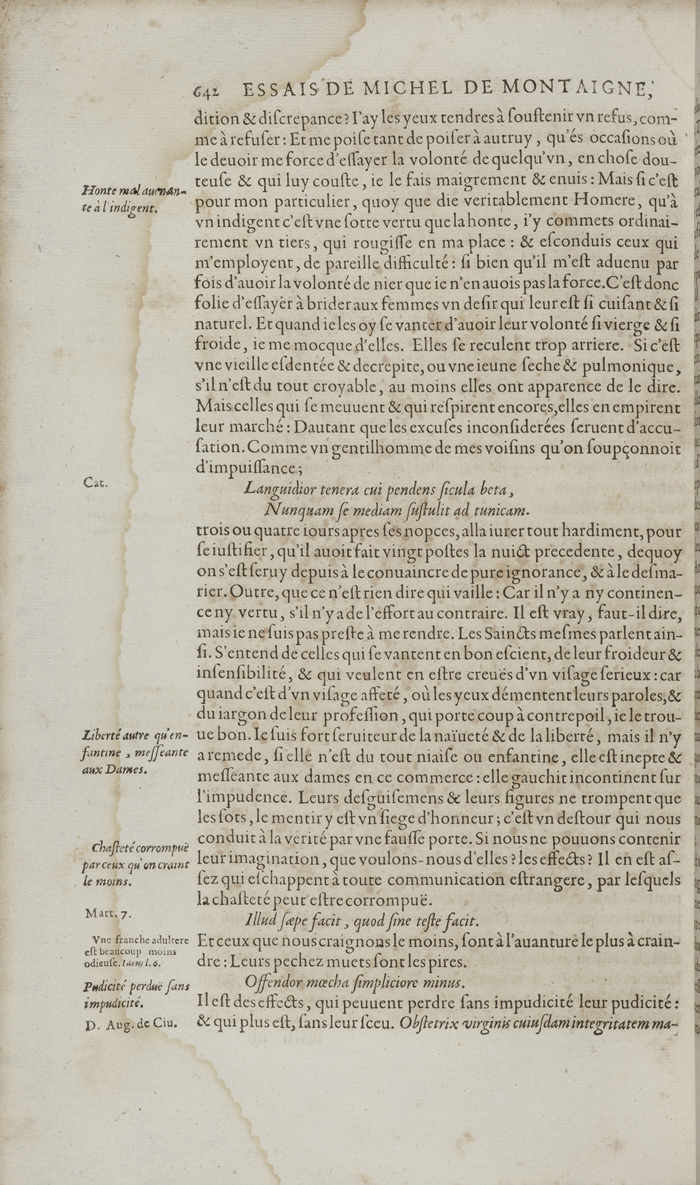 642 ESSAIS DE MICHEL DE MONTAIGNE,
dition & discrepance? I'ay les yeux tendres à soustenir vn refus, com-
me à refuser: Et me poise tant de poiser à autruy, qu'és occasions où
le deuoir me force d'essayer la volonté de quelqu'vn, en chose dou-
Honte mal auenan-
te à l'indigent.
teuse & qui luy couste, ie le fais maigrement & enuis: Mais si c'est
pour mon particulier, quoy que die veritablement Homere, qu'à
vn indigent c'est vne sotte vertu que la honte, i'y commets ordinai-
rement vn tiers, qui rougisse en ma place: & esconduis ceux qui
m'employent, de pareille difficulté: si bien qu'il m'est aduenu par
fois d'auoir la volonté de nier que ie n'en auois pas la force. C'est donc
folie d'essayer à brider aux femmes vn desir qui leur est si cuisant & si
naturel. Et quand ie les oy se vanter d'auoir leur volonté si vierge & si
froide, ie me mocque d'elles. Elles se reculent trop arriere. Si c'est
vne vieille esdentée & decrepite, ou vne ieune seche & pulmonique,
s'il n'est du tout croyable, au moins elles ont apparence de le dire.
Mais celles qui se meuuent & qui respirent encores, elles en empirent
leur marché: Dautant que les excuses inconsiderées seruent d'accu-
sation. Comme vn gentilhomme de mes voisins qu'on soupçonnoit
d'impuissance;
Cat.
Languidior tenera cui pendens sicula beta,
Nunquam se mediam sustulit ad tunicam.
trois ou quatre iours apres ses nopces, alla iurer tout hardiment, pour
se iustifier, qu'il auoit fait vingt postes la nuict precedente, dequoy
on s'est seruy depuis à le conuaincre de pure ignorance, & à le desma-
rier. Outre, que ce n'est rien dire qui vaille: Car il n'y a ny continen-
ce ny vertu, s'il n'y a de l'effort au contraire. Il est vray, faut-il dire,
mais ie ne suis pas preste à me rendre. Les Saincts mesmes parlent ain-
si. S'entend de celles qui se vantent en bon escient, de leur froideur &
insensibilité, & qui veulent en estre creuës d'vn visage serieux: car
quand c'est d'vn visage affeté, où les yeux démentent leurs paroles, &
du iargon de leur profession, qui porte coup à contrepoil, ie le trou-
Liberté autre qu'en-
fantine, messeante
aux Dames.
ue bon. Ie suis fort seruiteur de la naïueté & de la liberté, mais il n'y
a remede, si elle n'est du tout niaise ou enfantine, elle est inepte &
messeante aux dames en ce commerce: elle gauchit incontinent sur
l'impudence. Leurs desguisemens & leurs figures ne trompent que
les sots, le mentir y est vn siege d'honneur; c'est vn destour qui nous
conduit à la verité par vne fausse porte. Si nous ne pouuons contenir
Chasteté corrompuë
par ceux qu'on craint
le moins.
leur imagination, que voulons-nous d'elles? les effects? Il en est as-
sez qui eschappent à toute communication estrangere, par lesquels
la chasteté peut estre corrompuë.
Mart. 7.
Illud sæpe facit, quod sine teste facit.
Vne franche adultere
est beaucoup moins
odieuse. Idem l. 6.
Et ceux que nous craignons le moins, sont à l'auanture le plus à crain-
dre: Leurs pechez muets sont les pires.
Offendor mœcha simpliciore minus.
Pudicité perduë sans
impudicité.
Il est des effects, qui peuuent perdre sans impudicité leur pudicité:
D. Aug. de Ciu.
& qui plus est, sans leur sceu. Obstetrix virginis cuiusdam integritatem ma-